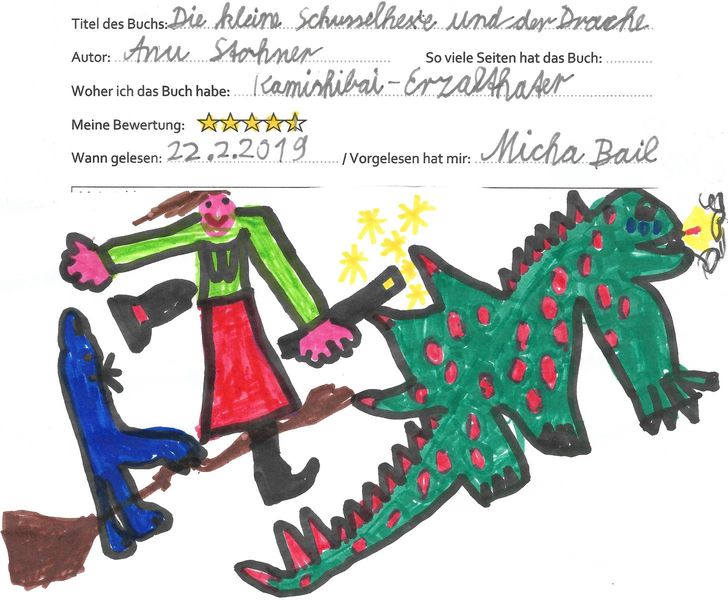 Titel des Buchs: Die kleine Schusselhexe und der Drache
Autor: Anu Stohner So viele Seiten hat das Buch:
Woher ich das Buch habe: Kamishibai-Erzälthater
Meine Bewertung:
Wann gelesen: 22.2.2019 / Vorgelesen hat mir: Micha Bail
W